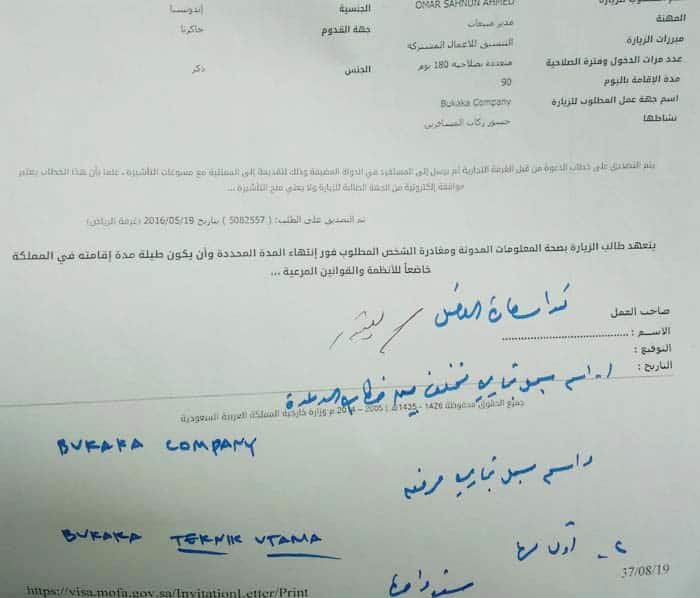 OMAR SAHNUN AHMED
الجنسية إندونيسيا
المهنة مدير مبيعات
جهة القدوم جاكرتا
مبررات الزيارة التنسيق للاعمال المشتركة
عدد مرات الدخول وفترة الصلاحية متعددة بصلاحية 180 يوم
الجنس ذكر
مدة الإقامة باليوم 90
اسم جهة عمل المطلوب للزيارة Bukaka Company
نشاطها جسور ركاب المسافرين
يتم التصديق على خطاب الدعوة من قبل الغرفة التجارية ثم يرسل إلى المستفيد في الدولة المضيفة وذلك لتقديمه إلى الممثلية مع مسوغات التأشيرة ، علما بأن هذا الخطاب يعتبر
موافقة إلكترونية من الجهة الطالبة للزيارة ولا يعني منح التأشيرة ...
تم التصديق على الطلب: ( 5082557 ) بتاريخ 2016/05/19 (غرفة الرياض)
يتعهد طالب الزيارة بصحة المعلومات المدونة ومغادرة الشخص المطلوب فور إنتهاء المدة المحددة وأن يكون طيلة مدة إقامته في المملكة
خاضعاً للأنظمة والقوانين المرعية ...
صاحب العمل
الاســم : ........................................
التوقيع :
التاريخ :
١ـ اسم سجل تجاري مختلف بين خطاب الدعوة
جميع الحقوق محفوظة 1426 - 1435هـ | 2005 - 2014 م وزارة خارجية المملكة العربية السعودية
BUKAKA COMPANY
واسم سجل تجاري مرفقه
BUKAKA TEKNIK UTAMA
٢ـ
37/08/19
https://visa.mofa.gov.sa/InvitationLetter/Print